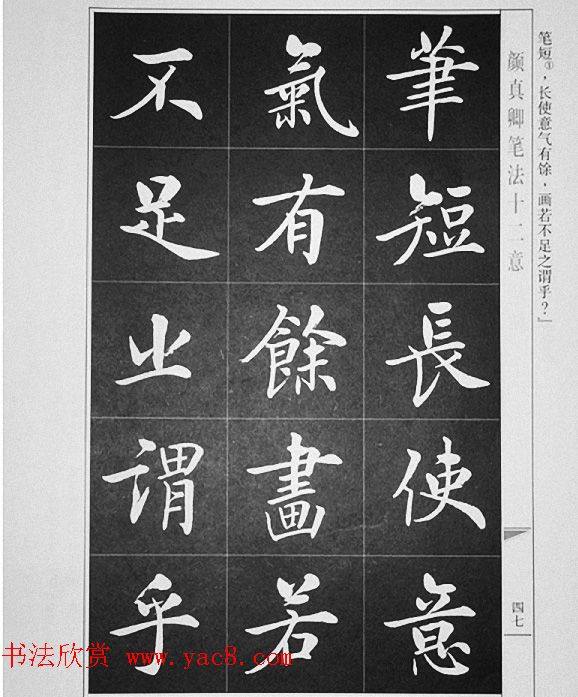 筆短長使意
氣有餘畫若
不足之謂乎
笔短③，长使意气有馀，画若不足之谓乎？」
颜真卿笔法十二意
四七
书法欣赏 www.yac8.com